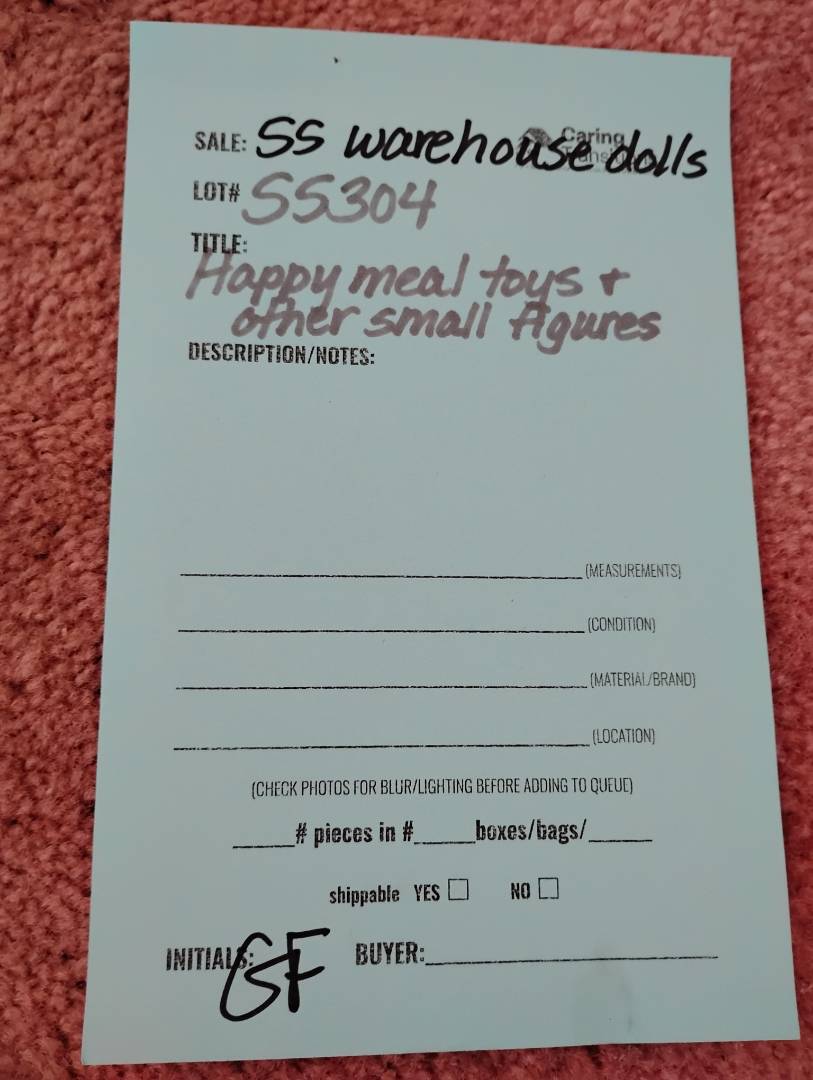 Caring
SALE: SS warehouse dolls
LOT# SS304
TITLE:
Happy meal toys +
other small figures
DESCRIPTION/NOTES:
(MEASUREMENTS)
(CONDITION)
(MATERIAL/BRAND)
(LOCATION)
(CHECK PHOTOS FOR BLUR/LIGHTING BEFORE ADDING TO QUEUE)
# pieces in # boxes/bags/
shippable YES NO
INITIALS: GF BUYER: